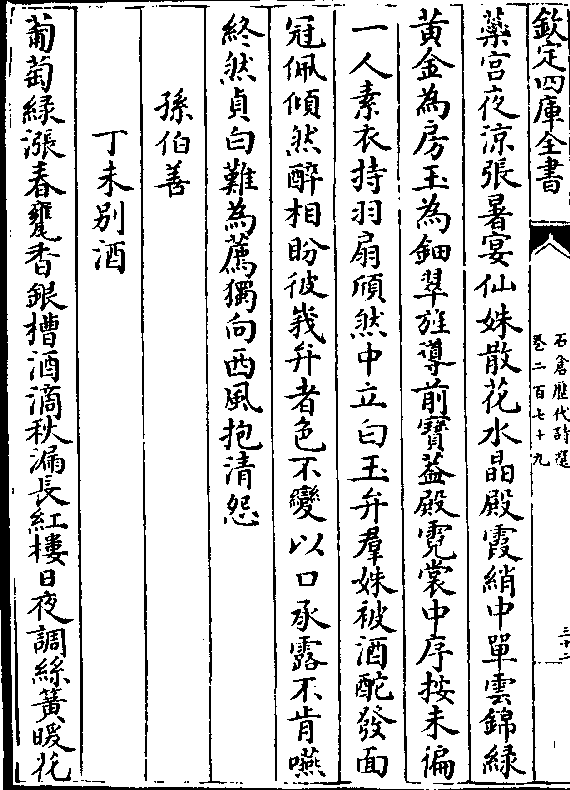 欽定四庫全書
石倉歷代詩選
卷二百七十九
三十二
蘂宮夜涼張暑宴仙姝散花水晶殿霞綃中單雲錦緑
黄金為房玉為鈿翠旌導前寶葢殿霓裳中序按未徧
一人素衣持羽扇頎然中立白玉弁羣姝被酒酡發面
冠佩傾然醉相盼彼峩弁者色不變以口承露不肯嚥
終然貞白難為薦獨向西風抱清怨
孫伯善
丁未别酒
葡萄緑漲春甕香銀槽酒滴秋漏長紅樓日夜調絲簧暖花